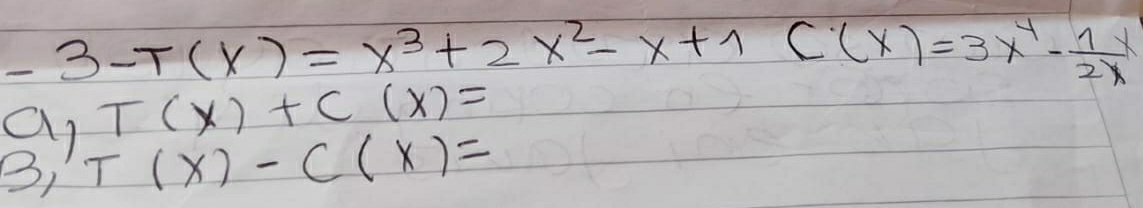 - 3-T(X) = x³+2x²-x+1 C(X)=3x⁴-1/2x x
a, T(X)+C(X)=
B, T(X)-C(X)=